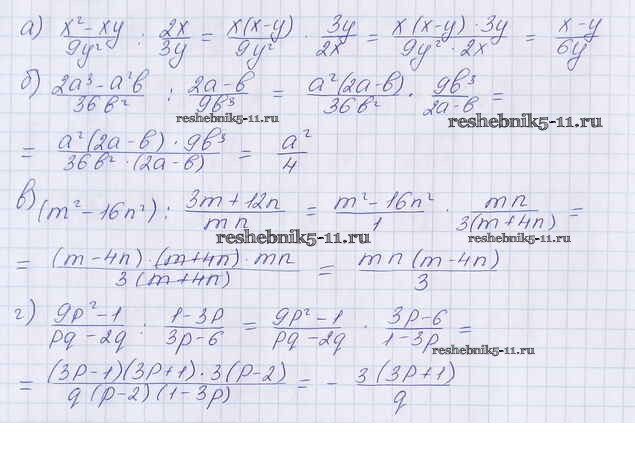 а) x²-xy/9y² : 2x/3y = x(x-y)/9y² · 3y/2x = x(x-y)·3y/9y²·2x = x-y/6y
б) 2a³-a²b/36b² : 2a-b/9b³ = a²(2a-b)/36b² · 9b³/2a-b =
reshebnik5-11.ru
reshebnik5-11.ru
= a²(2a-b)·9b³/36b²·(2a-b) = a²/4
в) (m²-16n²) : 3m+12n/mn = m²-16n²/1 · mn/3(m+4n) =
reshebnik5-11.ru
reshebnik5-11.ru
= (m-4n)·(m+4n)·mn/3(m+4n) = mn(m-4n)/3
г) 9p²-1/pq-2q : 1-3p/3p-6 = 9p²-1/pq-2q · 3p-6/1-3p =
reshebnik5-11.ru
= (3p-1)(3p+1)·3(p-2)/q(p-2)(1-3p) = - 3(3p+1)/q